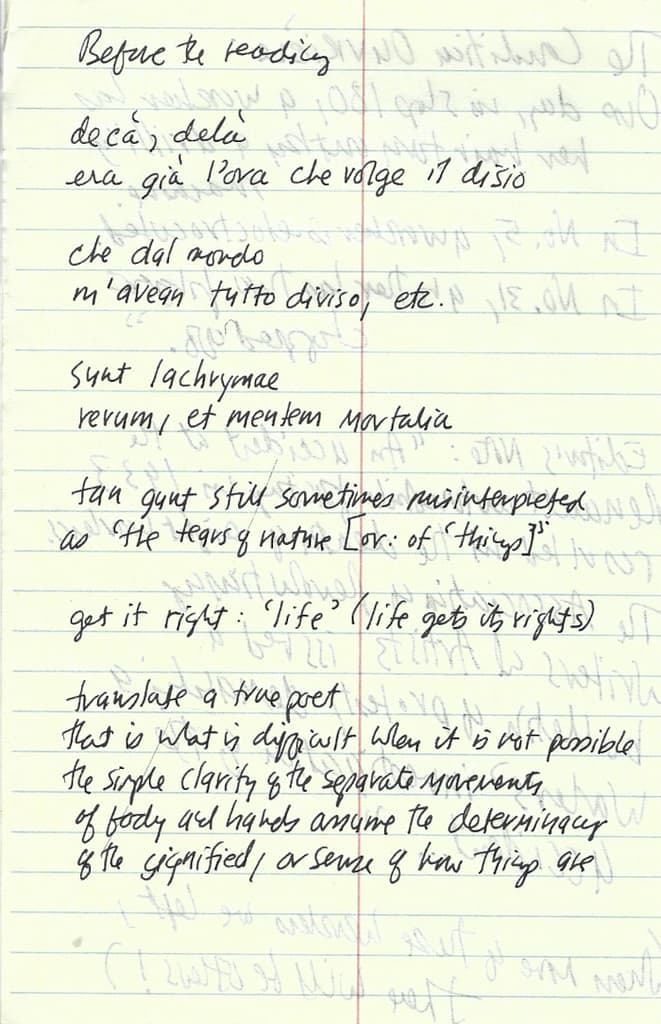 Before the reading
decà, delà
era già l'ora che volge il disio
che dal mondo
m'avean tutto diviso, etc.
sunt lachrymae
rerum, et mentem mortalia
tan gunt still sometimes misinterpreted
as 'the tears of nature [or: of 'things']'
get it right: 'life' (life gets its rights)
translate a true poet
that is what is difficult when it is not possible
the simple clarity of the separate movements
of body and hands assume the determinacy
of the signified, or sense of how things are